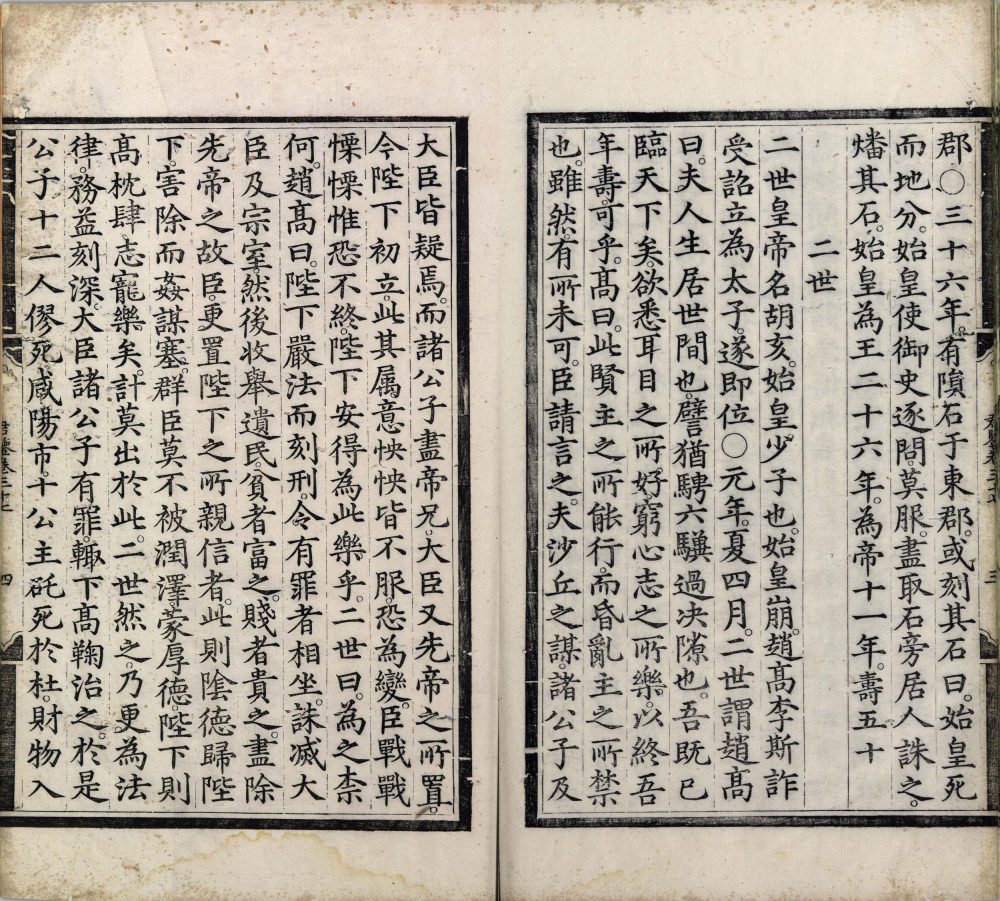 郡○三十六年。有隕石于東郡。或刻其石曰。始皇死
而地分。始皇使御史逐問。莫服。盡取石旁居人誅之。
燔其石。始皇為王二十六年。為帝十一年。壽五十
二世
二世皇帝名胡亥。始皇少子也。始皇崩。趙高李斯詐
受詔立為太子。遂即位○元年。夏四月。二世謂趙高
曰。夫人生居世間也。譬猶騁六驥過決隙也。吾既已
臨天下矣。欲悉耳目之所好。窮心志之所樂。以終吾
年壽。可乎。高曰。此賢主之所能行。而昏亂主之所禁
也。雖然。有所未可。臣請言之。夫沙丘之謀。諸公子及
大臣皆疑焉。而諸公子盡帝兄。大臣又先帝之所置。
今陛下初立。此其属意怏怏皆不服。恐為變。臣戰戰
慄慄。惟恐不終。陛下安得為此樂乎。二世曰。為之柰
何。趙高曰。陛下嚴法而刻刑。令有罪者相坐。誅滅大
臣及宗室。然後收舉遺民。貧者富之。賤者貴之。盡除
先帝之故臣。更置陛下之所親信者。此則陰德歸陛
下。害除而姦謀塞。群臣莫不被潤澤。蒙厚德。陛下則
高枕肆志寵樂矣。計莫出於此。二世然之。乃更為法
律。務益刻深。大臣諸公子有罪。輙下高鞠治之。於是
公子十二人僇死咸陽市。十公主矺死於杜。財物入
四